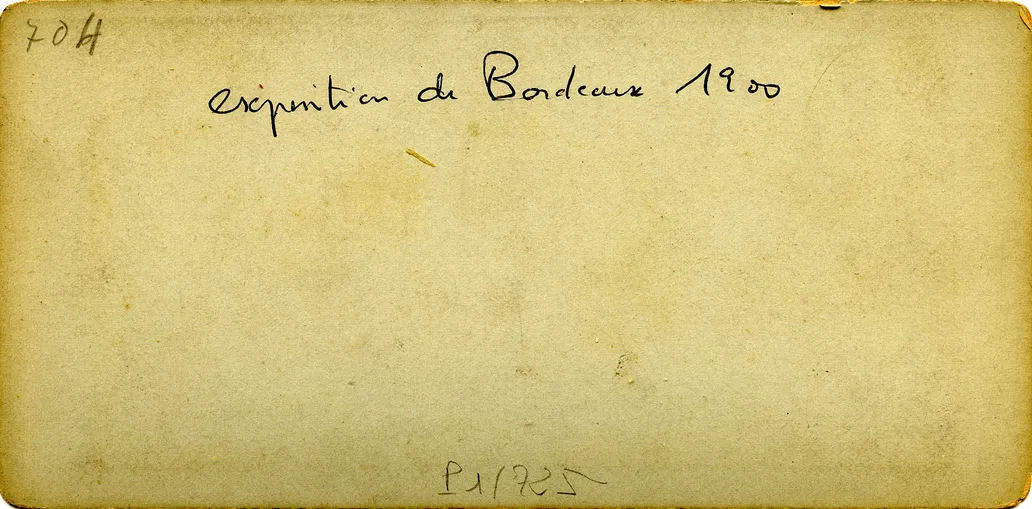 704
exposition de Bordeaux 1900
P1/725